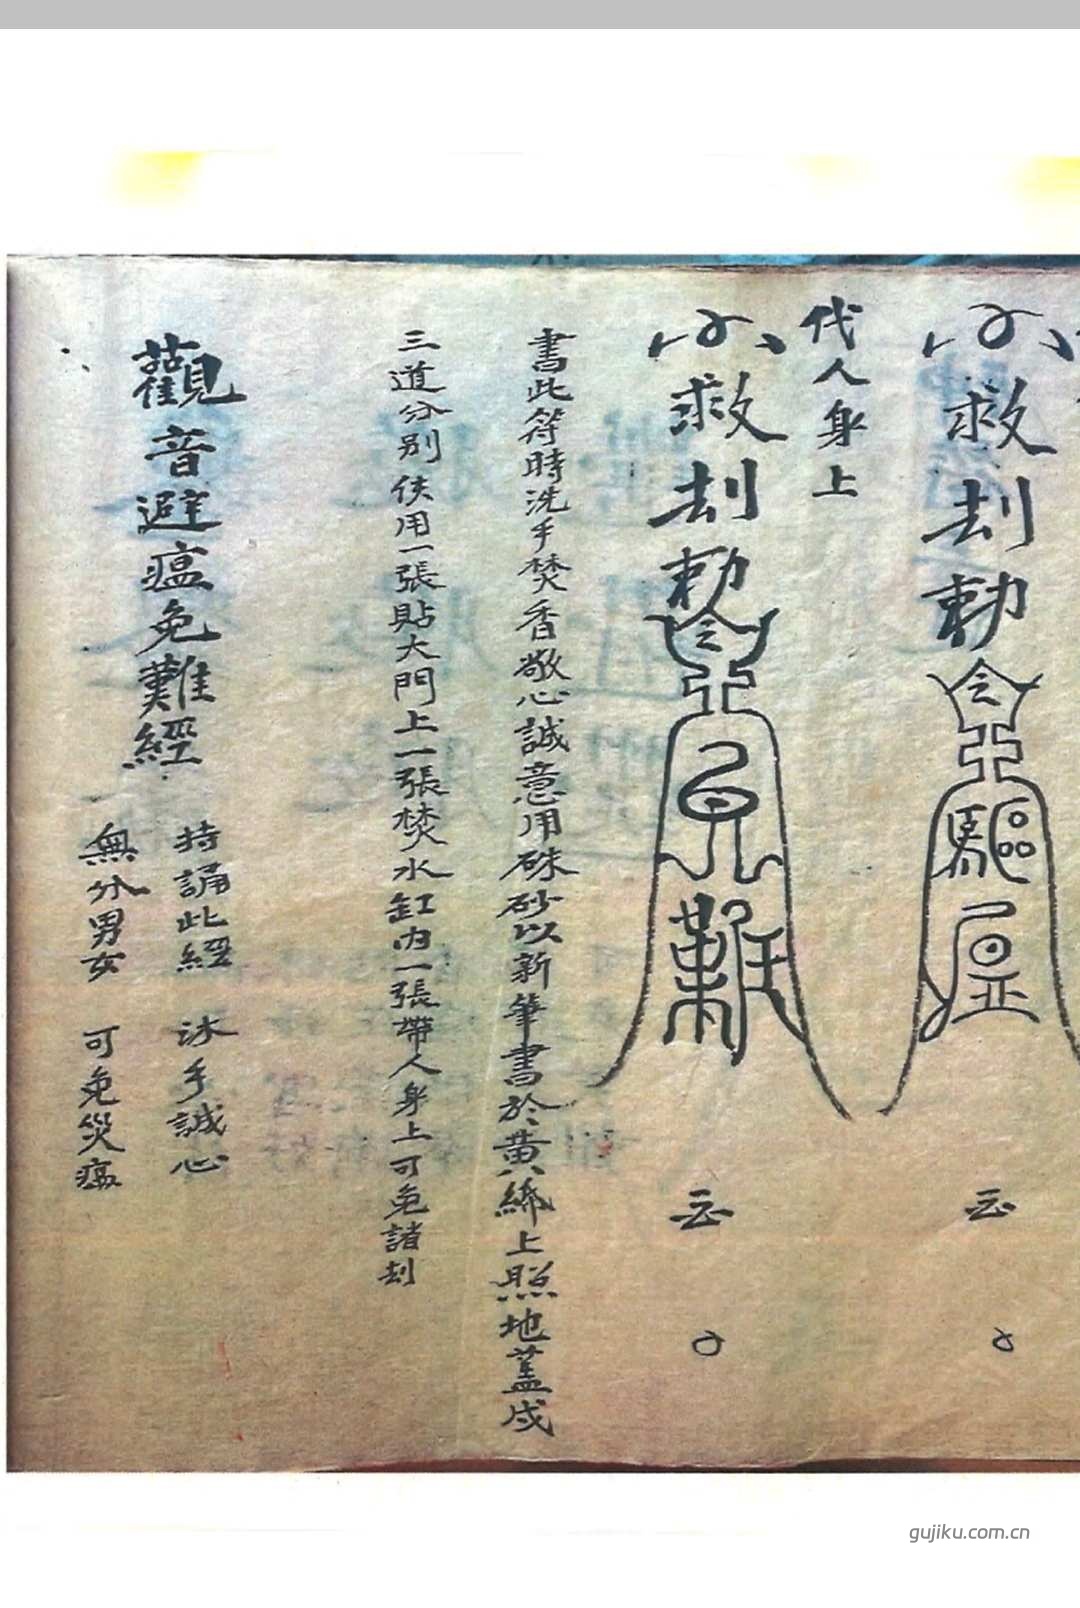 救刦勅令
驅
代人身上
救刦勅令
難
書此符時洗手焚香敬心誠意用硃砂以新筆書於黄綈上照地蓋成
三道分别使用一張貼大門上一張焚水缸内一張帶人身上可免諸刦
觀音避瘟免難經
持誦此經 沐手誠心
無分男女 可免災瘟
gujiku.com.cn